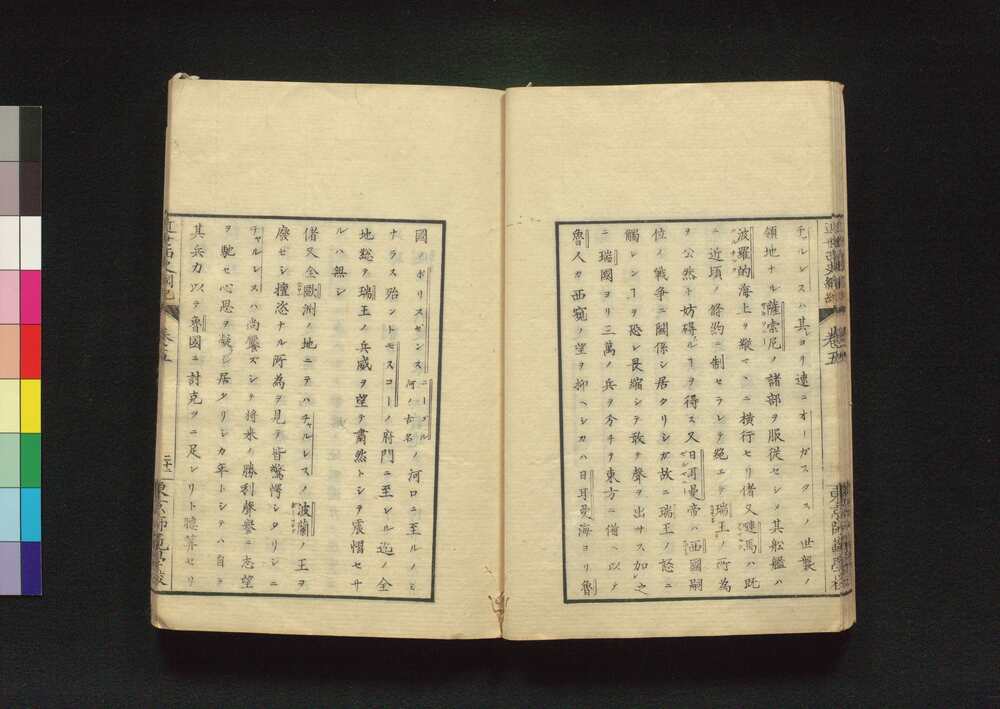 チャルレスハ其ヨリ速ニオーガスタスノ世襲ノ
領地ナル薩索尼ノ諸部ヲ服從セシメ其船艦ハ
波羅的海上ヲ縱マヽニ横行セリ偖又嗹馬ハ此
ニ近頃ノ條約ニ制セラレテ絶エテ瑞王ノ所為
ヲ公然ト妨碍スルヿヲ得ス又日耳曼帝ハ西國嗣
位ノ戰爭ニ關係シ居タリシガ故ニ瑞王ノ怒ニ
觸レンヿヲ恐レ畏縮シテ敢テ聲ヲ出サス加之
ニ瑞國ヨリ三萬ノ兵ヲ分チテ東方ニ備ヘ以テ
魯人カ西窺ノ望ヲ抑ヘシカハ日耳曼海ヨリ魯
近世西史綱紀
卷五
東京師範學校
國ノボリスゼンス ニーブル河ノ古名 ノ河口ニ至ルノミ
ナラス殆ントモスコーノ府門ニ至レル迄ノ全
地悉ク瑞王ノ兵威ヲ望テ肅然トシテ震慴セサ
ルハ無シ
偖又全歐洲ノ地ニテハチャルレスノ波蘭ノ王ヲ
廢セシ擅恣ナル所為ヲ見テ皆驚愕シタリシニ
チャルレスハ尚饜ズシテ將來ノ勝利聲譽ニ志望
ヲ馳セ心思ヲ凝シ居タリシカ年トシテハ自ラ
其兵力以テ魯國ヲ討克ツニ足レリト臆算セリ
近世西史綱紀
卷五
二十二
東京師範學校